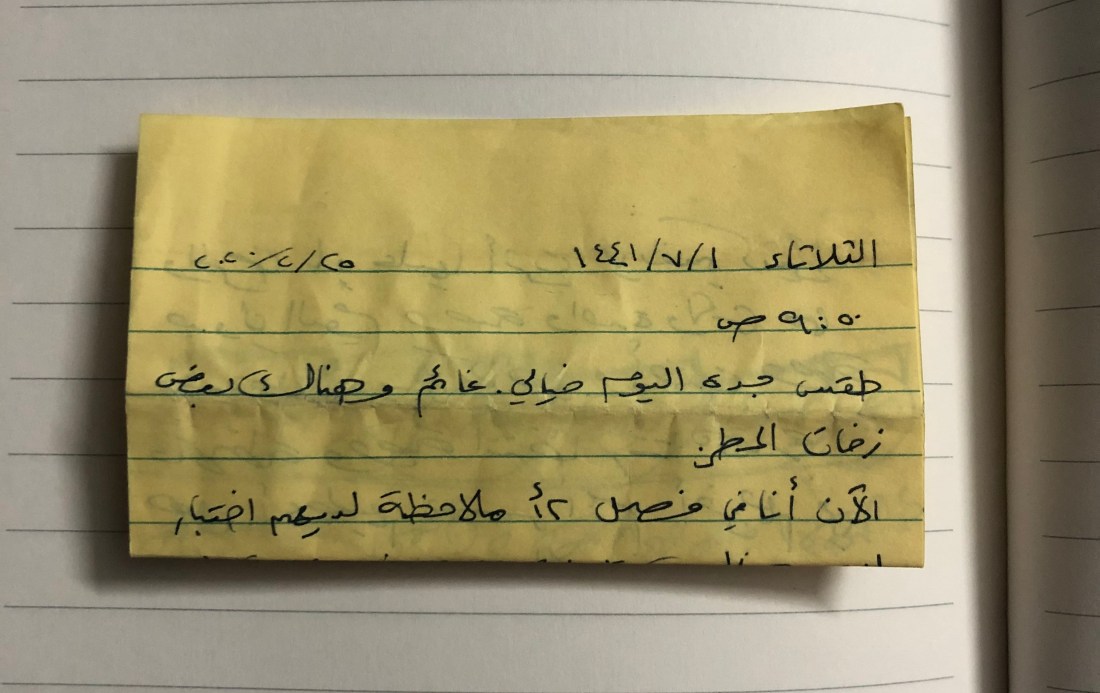 الثلاثاء ١٤٤١/٧/١ ٢٠٢٠/٢/٢٥
٩:٥٠ ص
طقس جده اليوم خيالي. غائم وهناك بعض
زخات المطر.
الآن أنا في فصل ٢أ ملاحظة لديهم اختبار